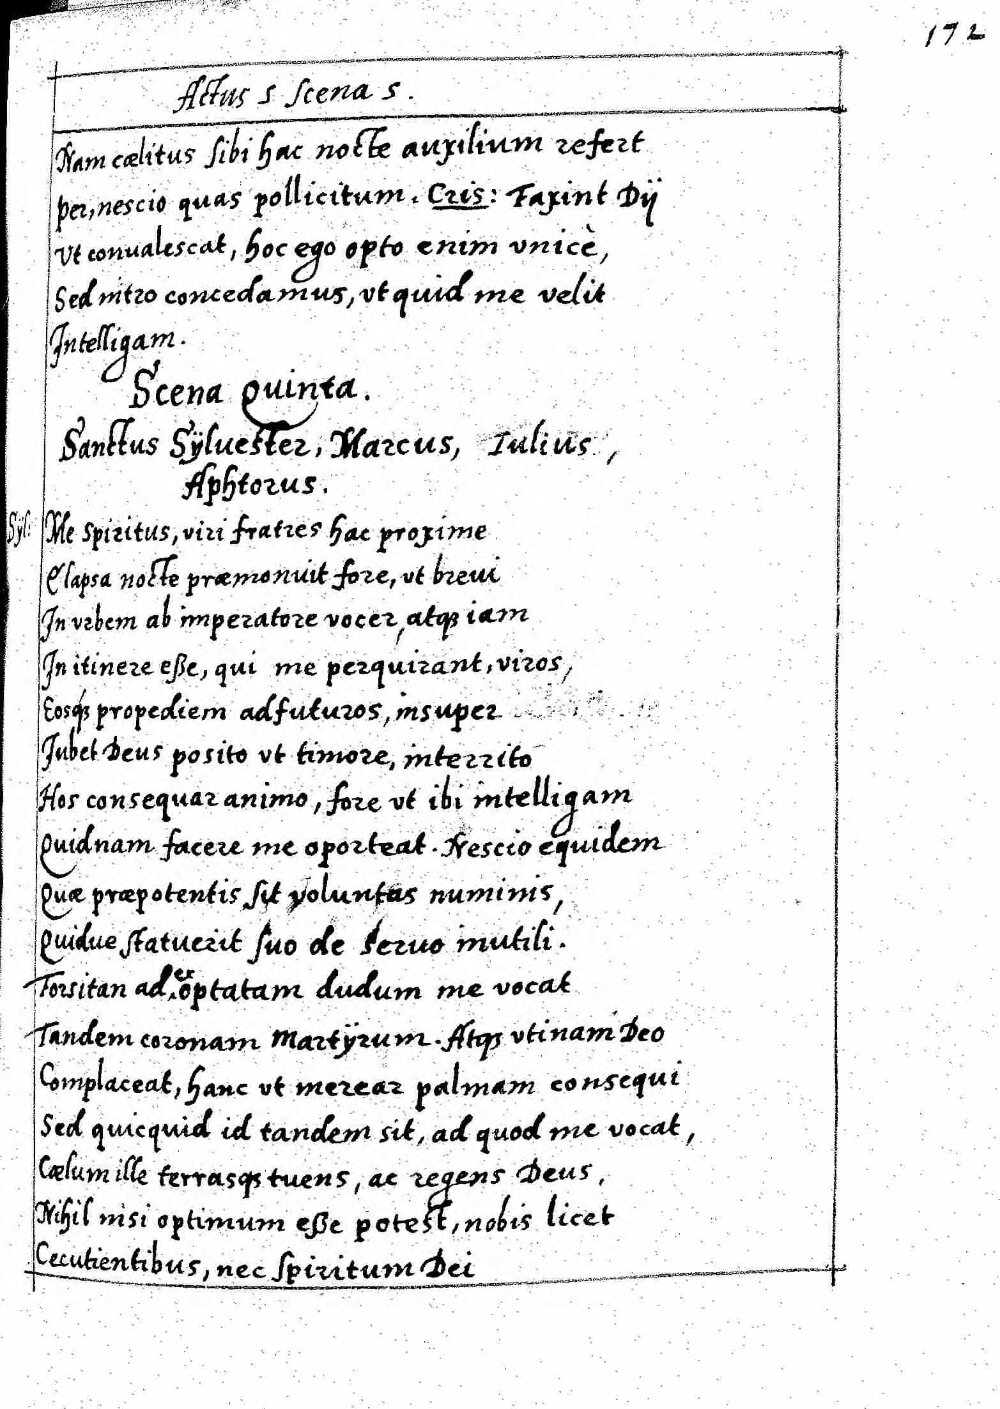 172
Actus 5 Scena 5.
Nam cælitus sibi hac nocte auxilium refert
Per, nescio quas pollicitum. Cris: Faxint Dij
Vt conualescat, hoc ego opto enim vnicè,
Sed intro concedamus, vt quid me velit
Intelligam.
Scena Quinta.
Sanctus Sÿluester, Marcus, Iulius,
Aphtorus.
Syl: Me spiritus, viri fratres hac proxime
Elapsa nocte præmonuit fore, vt breui
In vrbem ab imperatore vocer, atqꝫ iam
In itinere eße, qui me perquirant, viros,
Eosqꝫ propediem adfuturos, insuper
Iubet Deus posito vt timore, interrito
Hos consequar animo, fore vt ibi intelligam
Quidnam facere me oporteat. Nescio equidem
Quæ præpotentis sit voluntas numinis,
Quidue statuerit suo de seruo inutili.
Forsitan ad exoptatam dudum me vocat
Tandem coronam Martÿrum. Atqꝫ vtinam Deo
Complaceat, hanc vt merear palmam consequi
Sed quicquid id tandem sit, ad quod me vocat,
Cælum ille terrasqꝫ tuens, ac regens Deus,
Nihil nisi optimum eße potest, nobis licet
Cecutientibus, nec spiritum Dei